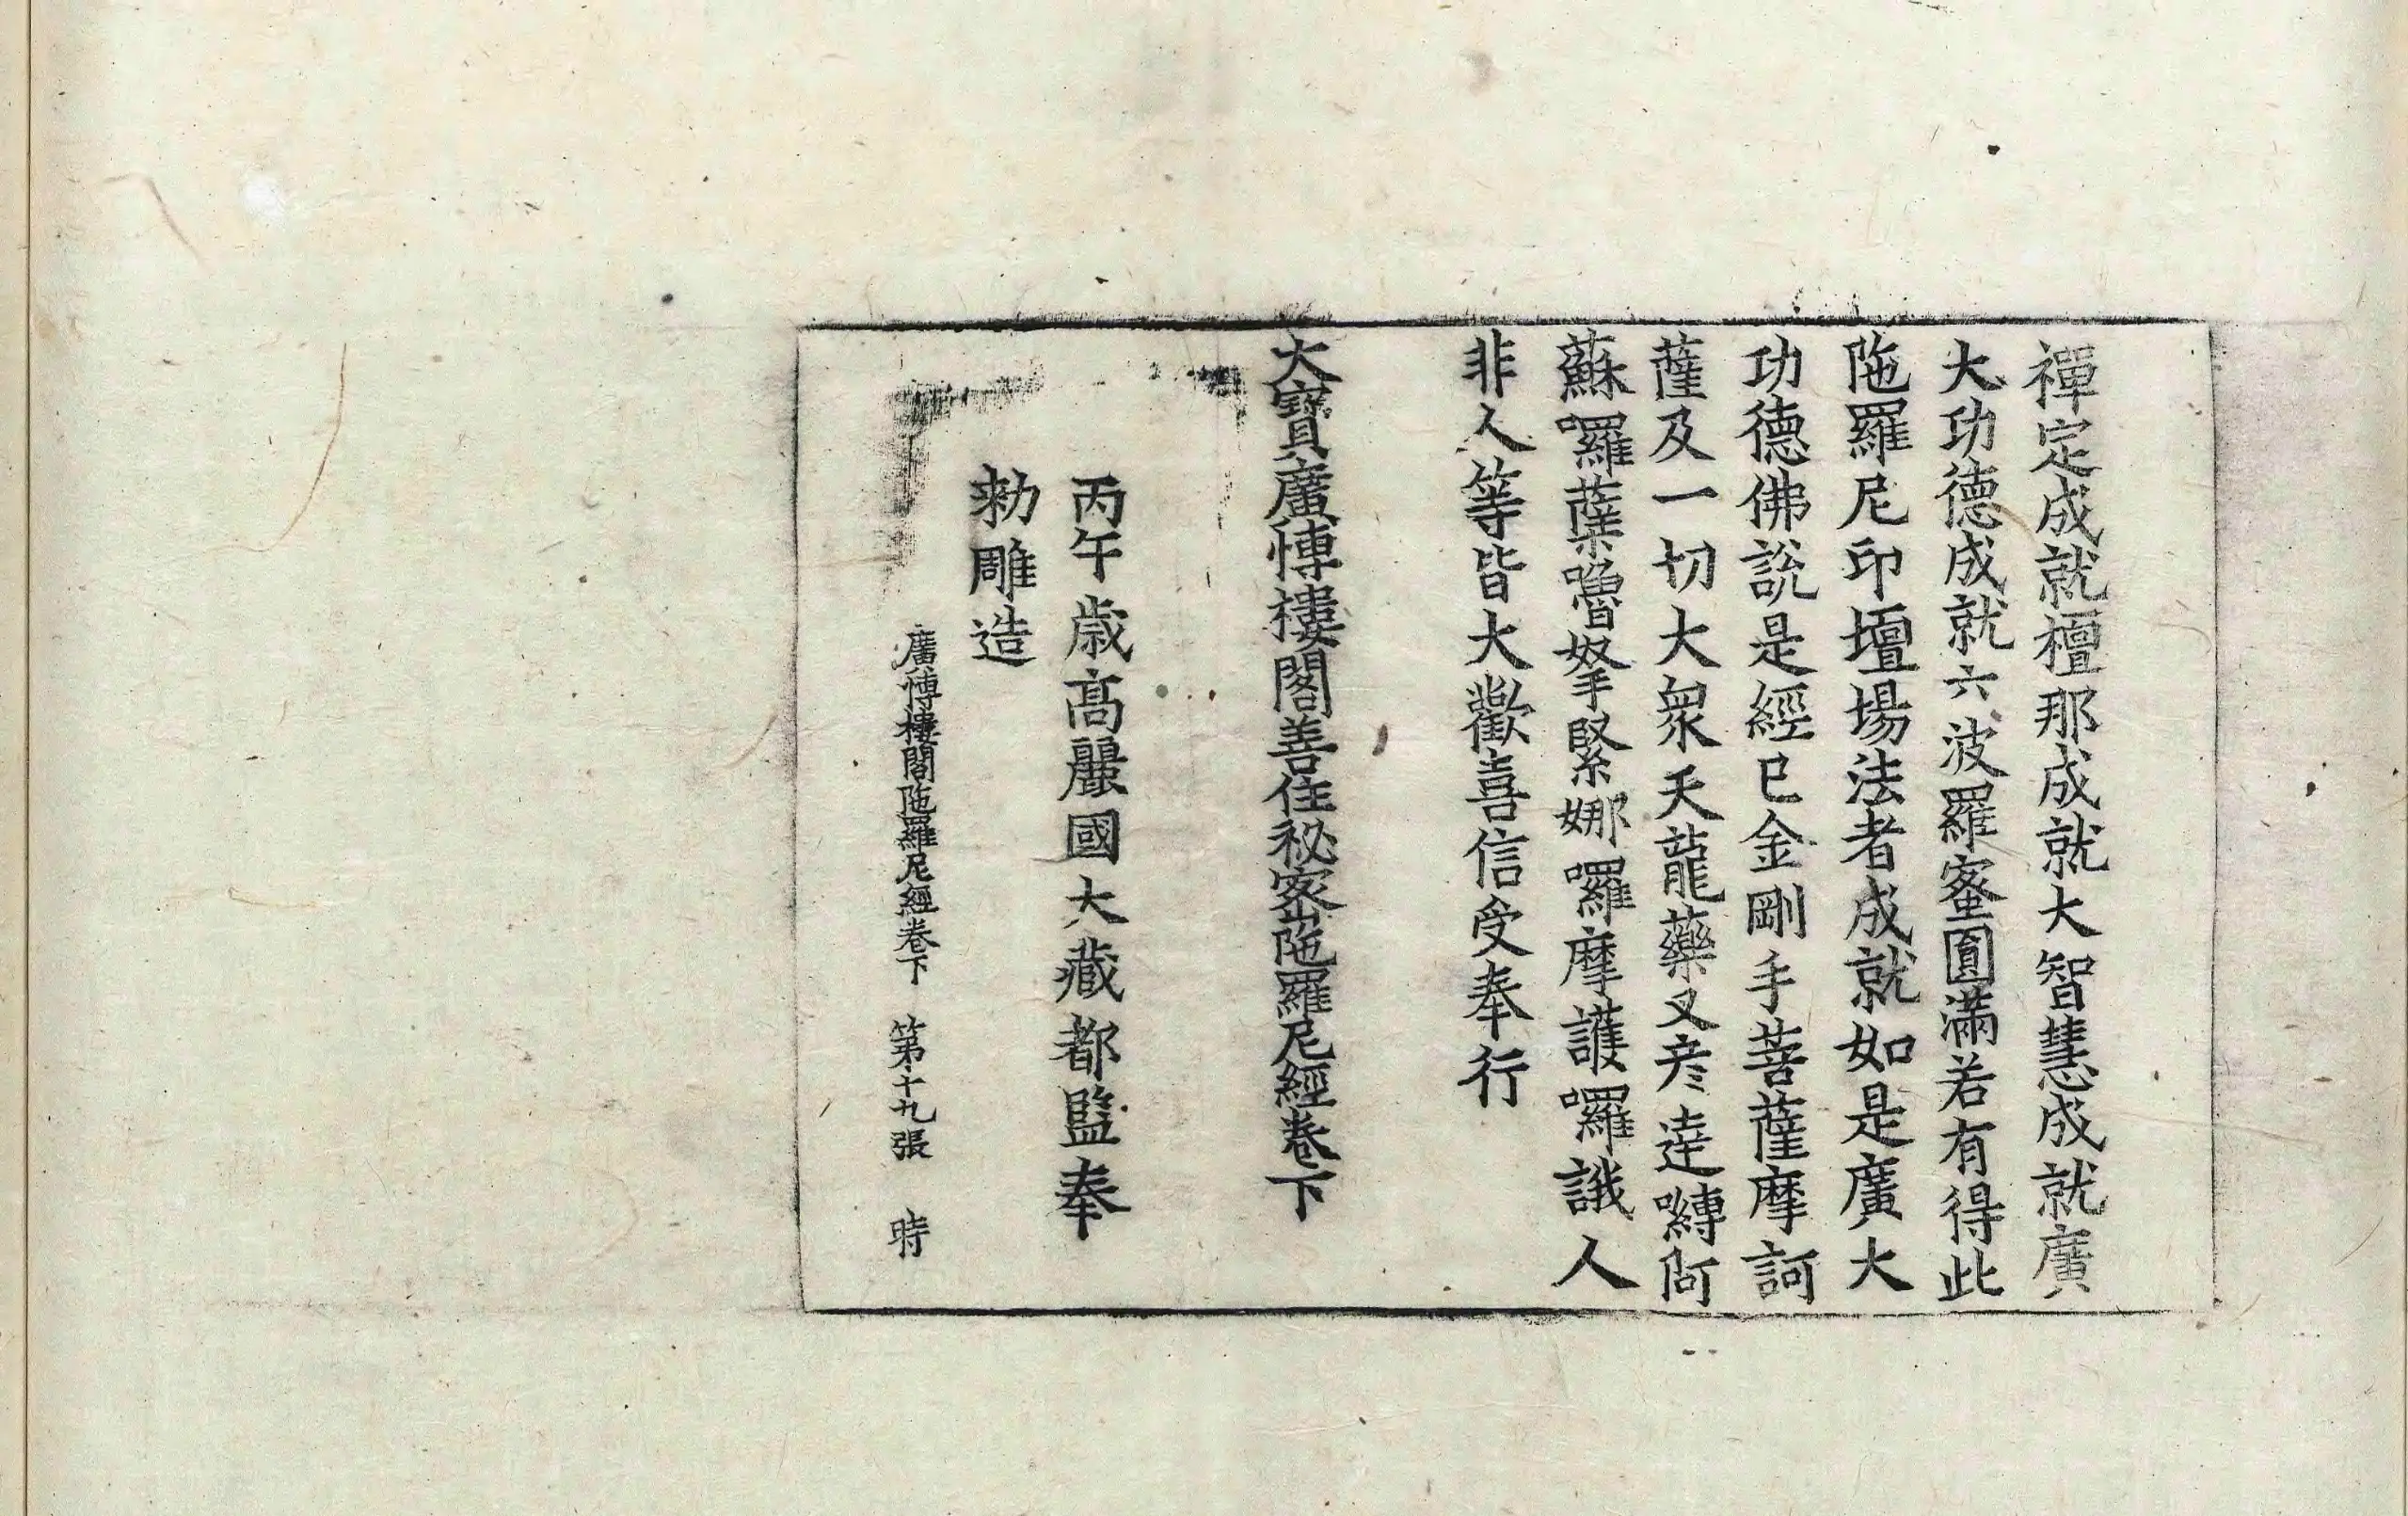 禪定成就檀那成就大智慧成就廣
大功德成就六波羅蜜圓滿若有得此
陁羅尼印壇場法者成就如是廣大
功德佛說是經已金剛手菩薩摩訶
薩及一切大衆天龍藥叉彦達嚩阿
蘇囉蘗嚕拏緊娜囉摩護囉誐人
非人等皆大歡喜信受奉行
大寶廣愽樓閣善住秘密陁羅尼經卷下
丙午歲高麗國大藏都監奉
勑雕造
廣愽樓閣陁羅尼經卷下 第十九張 時